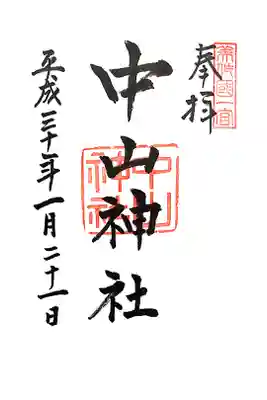 奉拝
美作國一宮
中山神社
中山神社
平成三十年一月二十一日